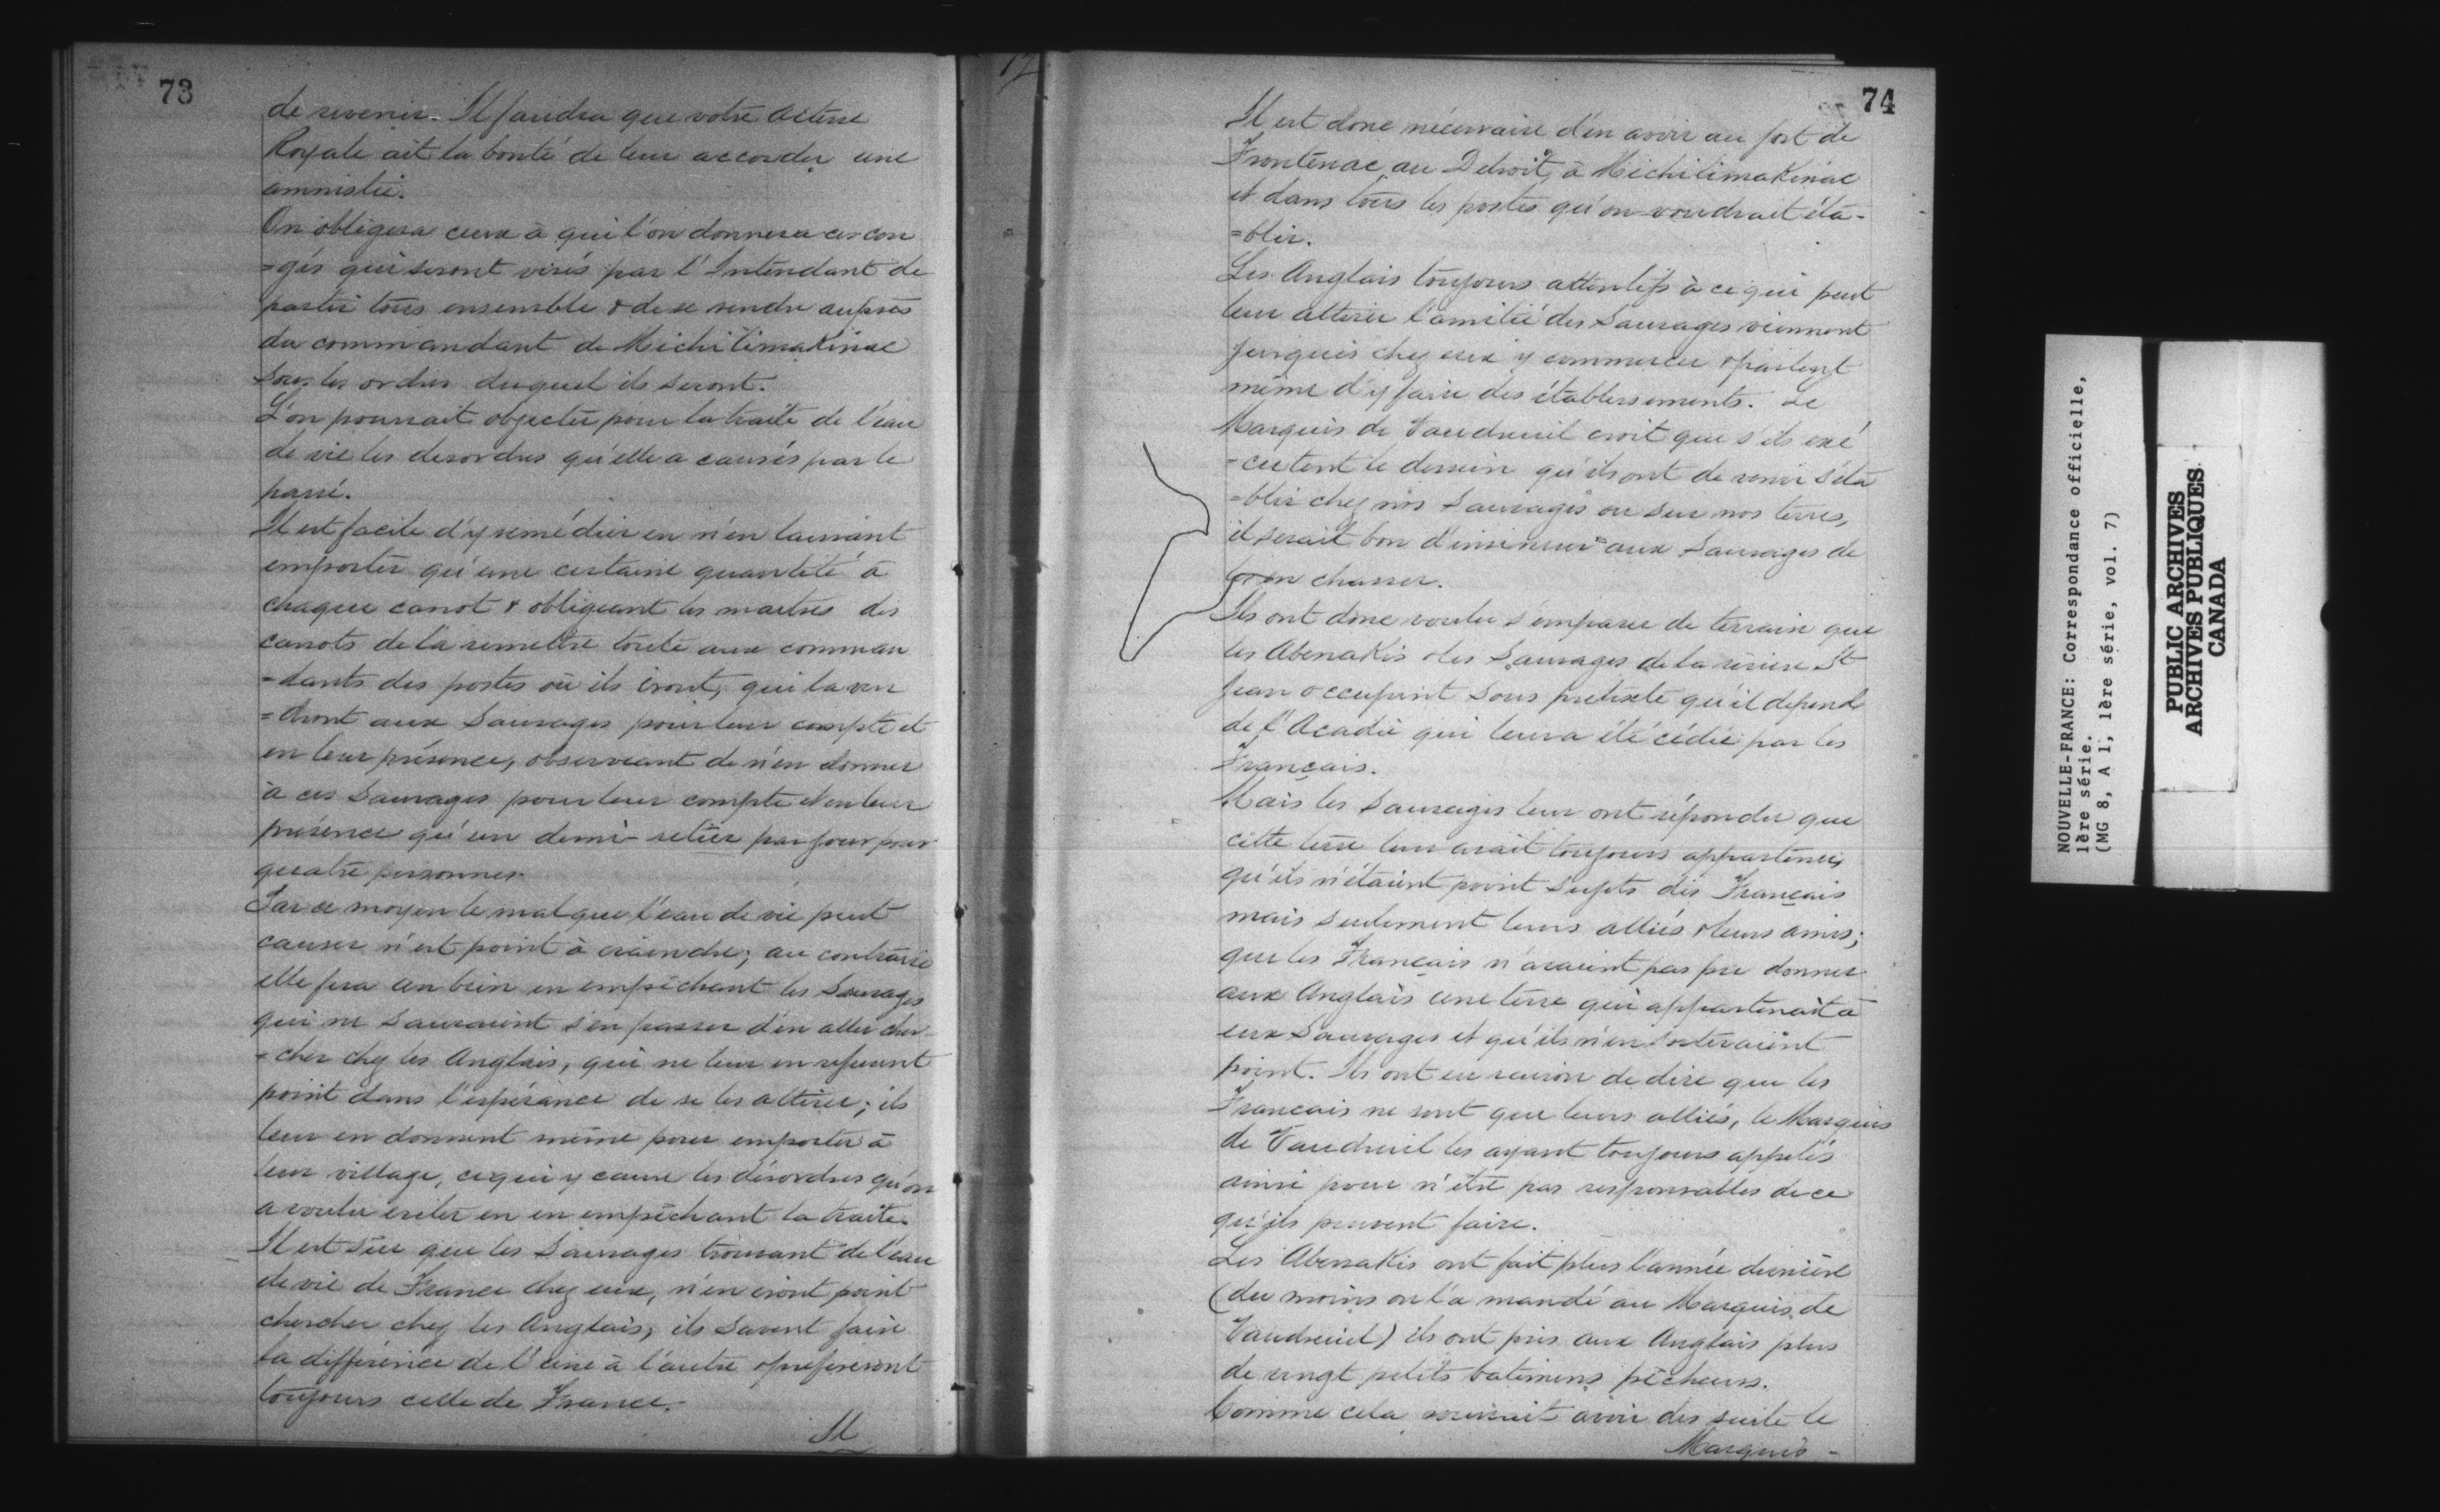 73
de revenir. Il faudra que votre altesse
Royale ait la bonté de leur accorder une
amnistie.
On obligera ceux à qui l'on donnera ces con
=gés qui seront visés par l'Intendant de
partir tous ensemble & de se rendre auprès
du commandant de Michilimakinac
sous les ordres duquel ils seront.
L'on pourrait objecter pour la traite de l'eau
de vie les desordres qu'elle a causés par le
passé.
Il est facile d'y remédier en n'en laissant
emporter qu'une certaine quantité à
chaque canot & obligeant les maitres des
canots de la remettre toute aux comman
=dants des postes où ils iront, qui la ven
=dront aux Sauvages pour leur compte et
en leur présence, observant de n'en donner
à ces Sauvages pour leur compte et en leur
présence qu'un demi-setier par jour pour
quatre personnes.
Par ce moyen le mal que l'eau de vie peut
causer n'est point à craindre; au contraire
elle fera un bien en empêchant les Sauvages
qui ne sauraient s'en passer d'en aller cher-
=cher chez les Anglais, qui ne leur en refusent
point dans l'espérance de se les attirer; ils
leur en donnent même pour emporter à
leur village, ce qui y cause les désordres qu'on
a voulu eviter en en empêchant la traite.
Il est sûr que les Sauvages trouvant de l'eau
de vie de France chez eux, n'en iront point
chercher chez les Anglais, ils savent faire
la différence de l'une à l'autre & préfèreront
toujours celle de France.
Il
74
Il est donc nécessaire d'en avoir au fort de
Frontenac, au Detroit, à Michilimakinac
et dans tous les postes qu'on voudrait éta-
=blir.
Les Anglais toujours attentifs à ce qui peut
leur attirer l'amitié des Sauvages viennent
jusques chez eux y commercer & parlent
même d'y faire des établissements. Le
Marquis de Vaudreuil croit que s'ils exé
=cutent le dessein qu'ils ont de venir s'éta
=blir chez nos Sauvages ou sur nos terres,
il serait bon d'insinuer aux Sauvages de
les en chasser.
Ils ont donc voulu s'emparer de terrain que
les Abenakis & les Sauvages de la rivière St
Jean occupent sous prétexte qu'il depend
de l'Acadie qui leur a été cédée par les
Français.
Mais les Sauvages leur ont répondu que
cette terre leur avait toujours appartenue,
qu'ils n'étaient point sujets des Français
mais seulement leurs alliés & leurs amis;
que les Français n'avaient pas pu donner
aux Anglais une terre qui appartenait à
eux Sauvages et qu'ils n'en sortiraient
point. Ils ont eu raison de dire que les
Français ne sont que leurs alliés, le Marquis
de Vaudreuil les ayant toujours appelés
ainsi pour n'être pas responsables de ce
qu'ils peuvent faire.
Les Abenakis ont fait plus l'année dernière
(du moins on l'a mandé au Marquis de
Vaudreuil) ils ont pris aux Anglais plus
de vingt petits batimens pêcheurs.
Comme cela pourrait avoir des suite le
Marquis-
NOUVELLE-FRANCE: Correspondance officielle,
1ère série.
(MG 8, A 1, 1ère série, vol. 7)
PUBLIC ARCHIVES
ARCHIVES PUBLIQUES
CANADA